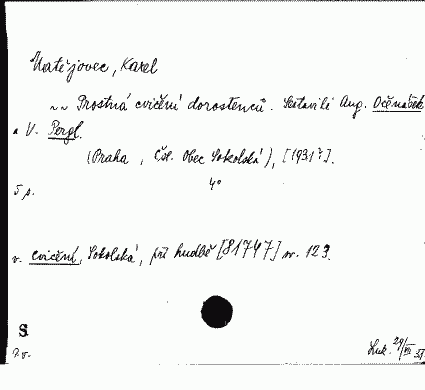 Matějovec, Karel
~~ Prostná cvičení dorostenců. Sestavili Aug. Očenášek
a V. Pergl.
(Praha, Čsl. Obec Sokolská), [1931?].
4°
5 p.
v. cvičení, Sokolská, při hudbě [81747] nr. 123.
S
Luk. 29/VII 37